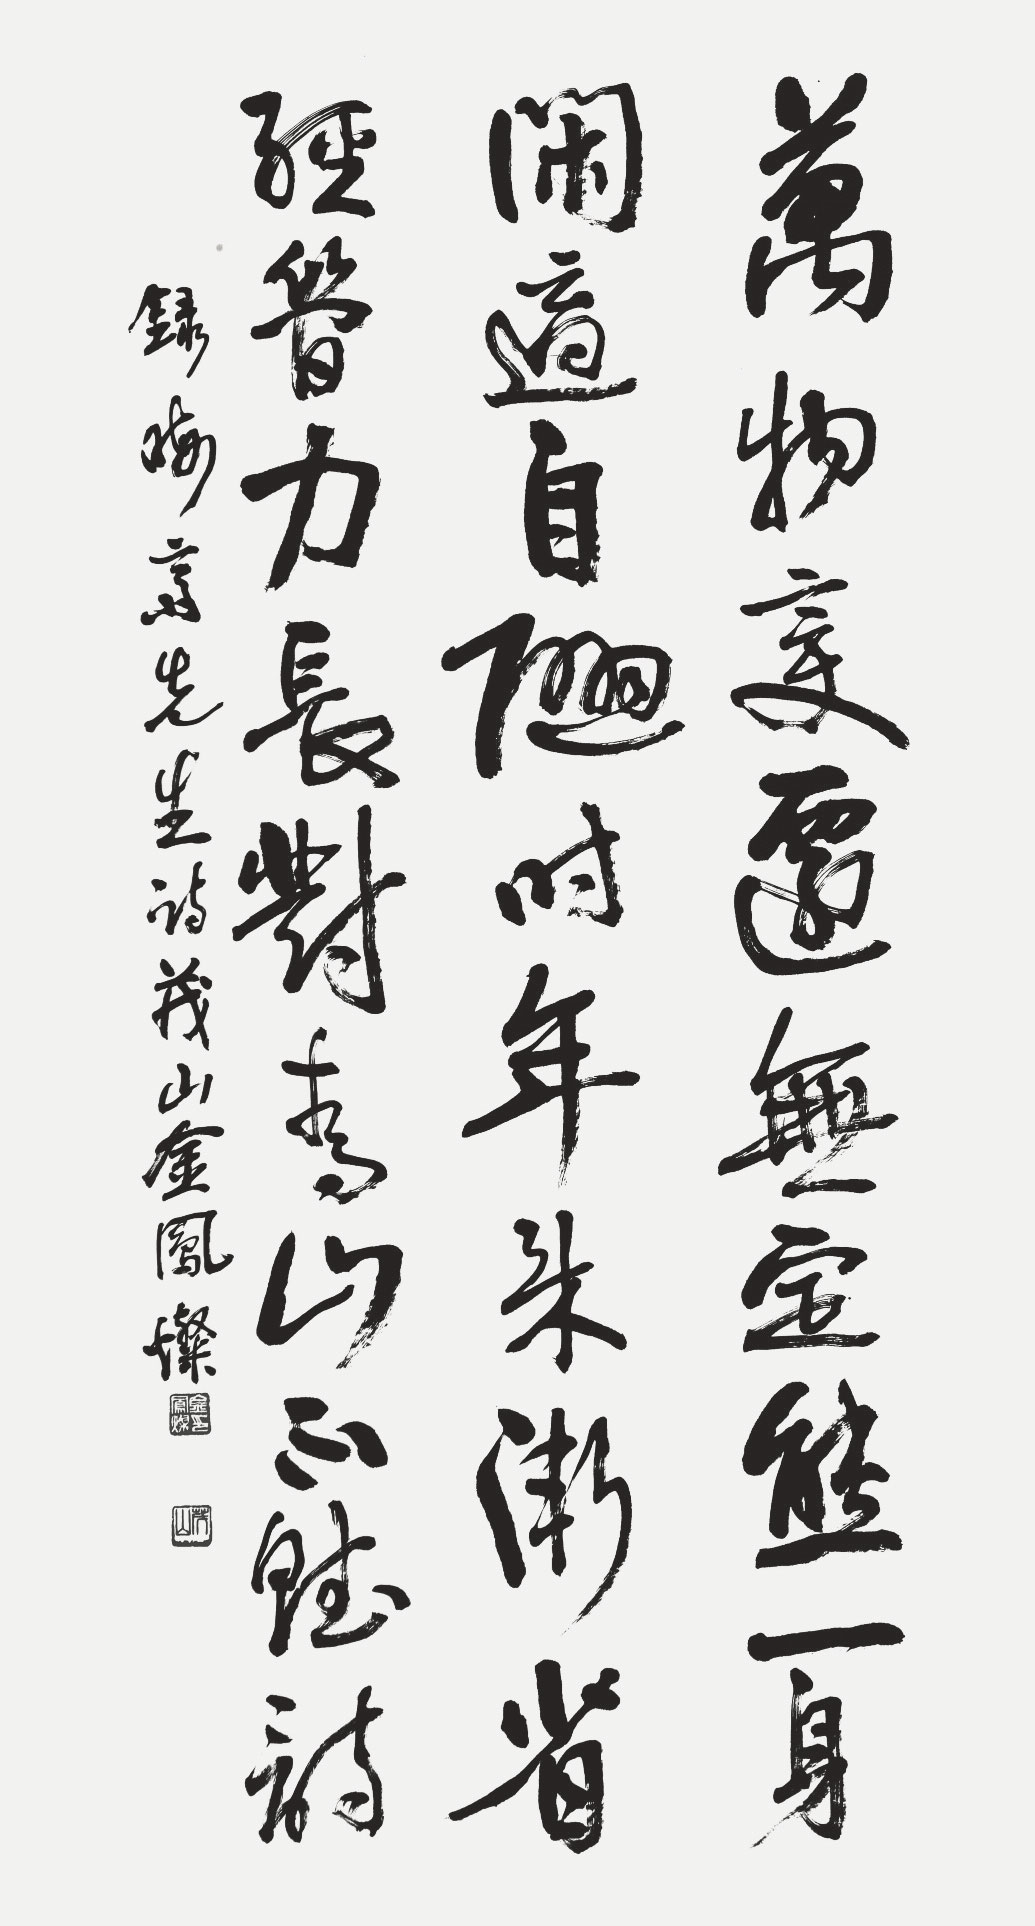 萬物變遷無定態一身
閑適自隨時年來漸省
經營力長對靑山不賦詩
錄晦齋先生詩茂山金鳳燦
金鳳燦印
茂山